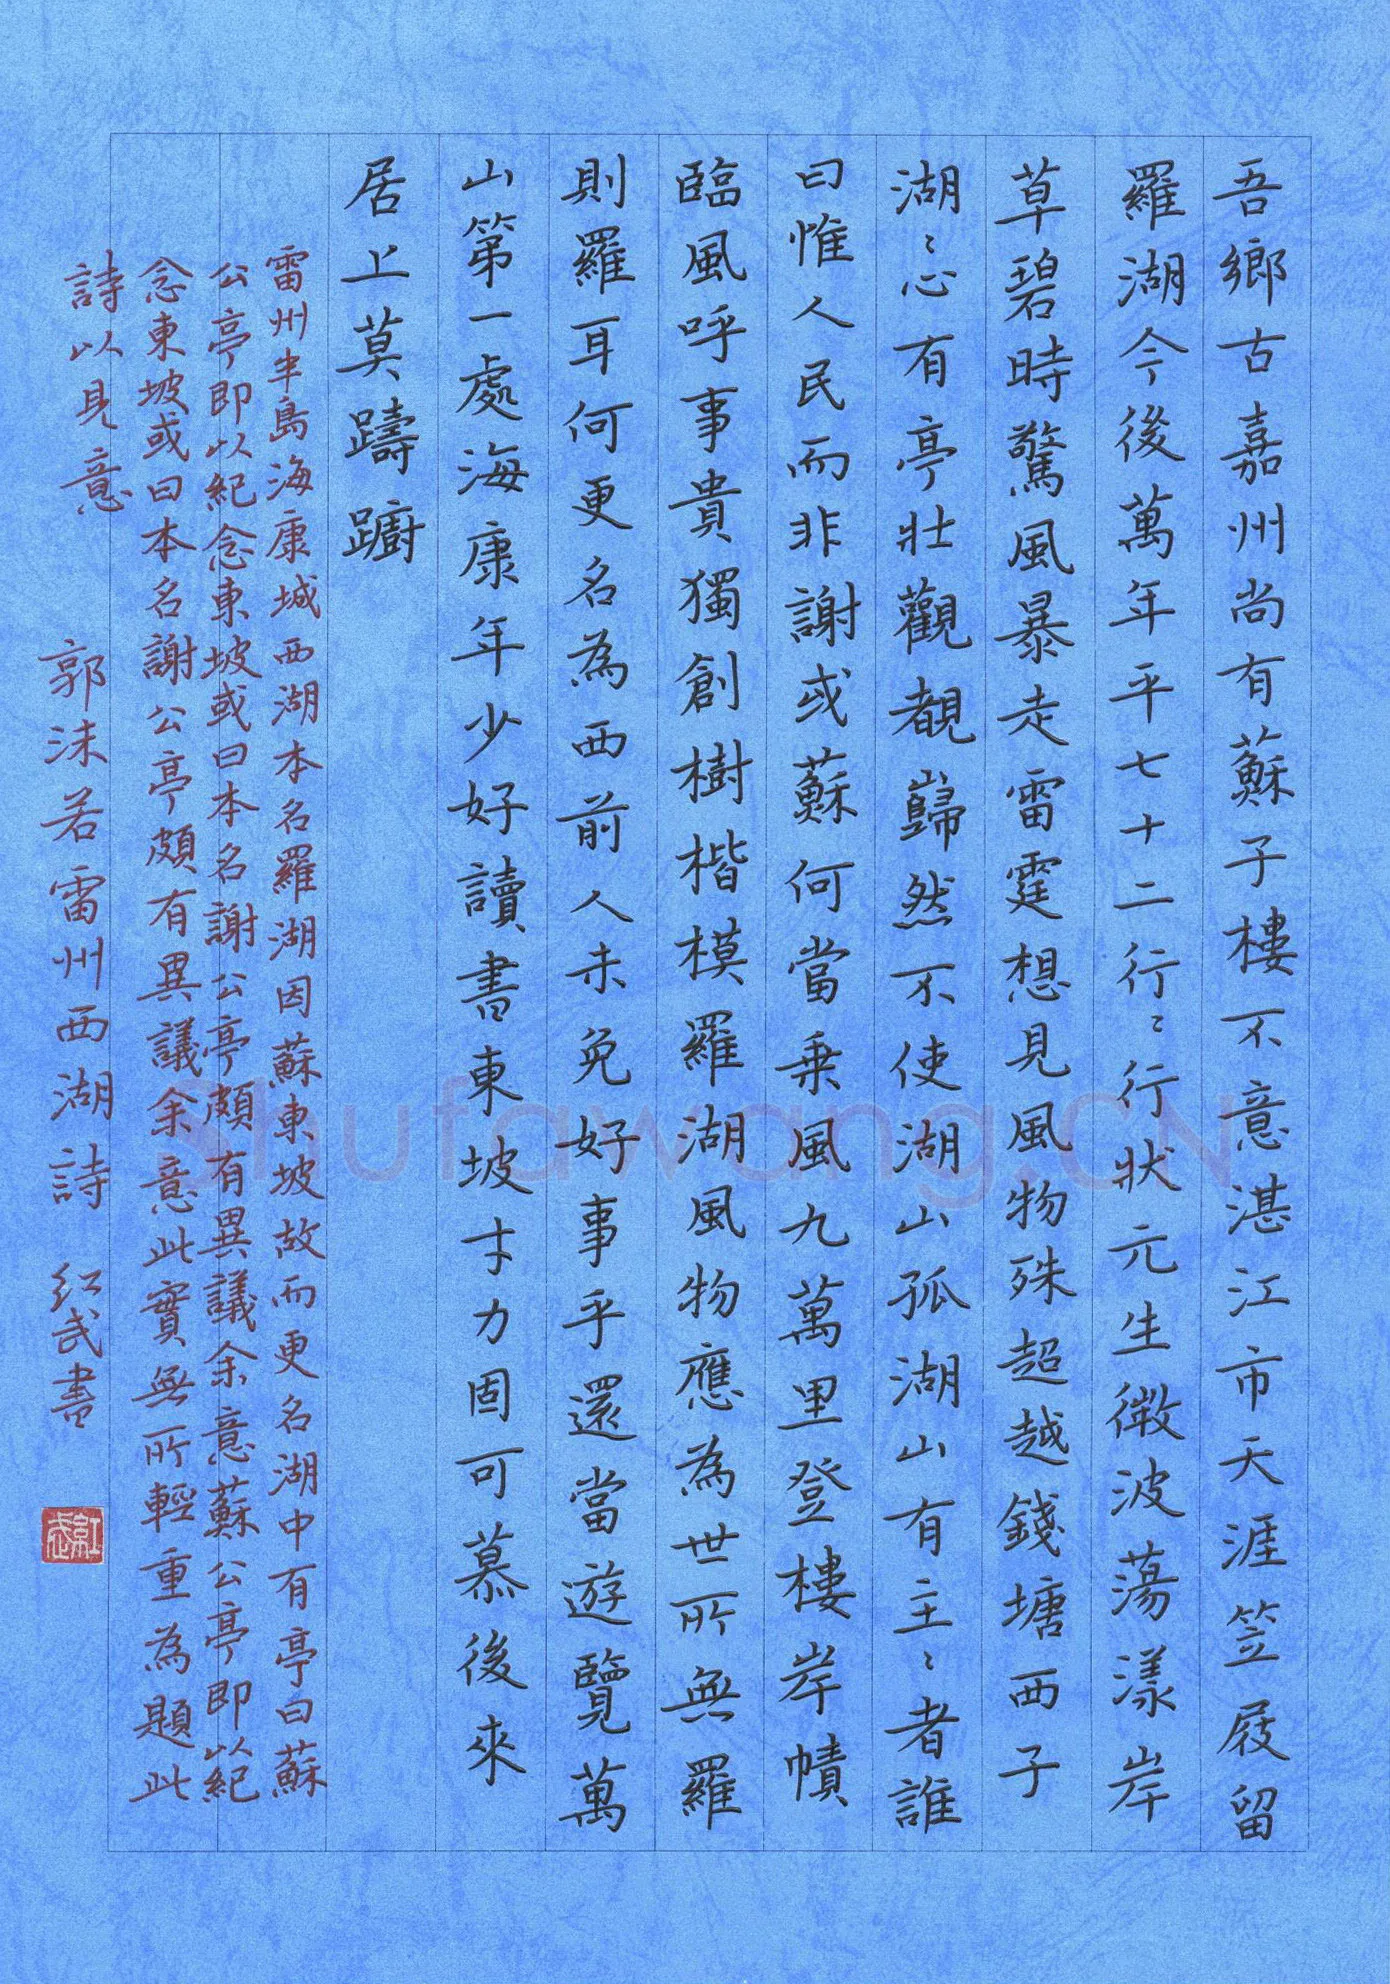 吾鄉古嘉州尚有蘇子樓不意湛江市天涯笠屐留
羅湖今後萬年平七十二行〻行狀元生微波蕩漾岸
草碧時驚風暴走雷霆想見風物殊超越錢塘西子
湖〻心有亭壯觀覩巋然不使湖山孤湖山有主〻者誰
曰惟人民而非謝或蘇何當乗風九萬里登樓岸幘
臨風呼事貴獨創樹楷模羅湖風物應為世所無羅
則羅耳何更名為西前人未免好事乎還當遊覽萬
山第一處海康年少好讀書東坡才力固可慕後來
居上莫躊躕
雷州半島海康城西湖本名羅湖因蘇東坡故而更名湖中有亭曰蘇
公亭即以紀念東坡或曰本名謝公亭頗有異議余意蘇公亭即以紀
念東坡或曰本名謝公亭頗有異議余意此實無所輕重為題此
詩以見意
郭沫若雷州西湖詩 紅武書
紅武
Shufawang.CN